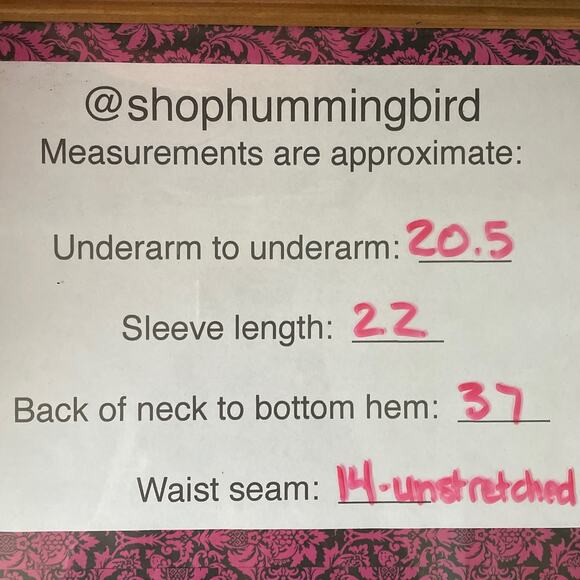 @shophummingbird
Measurements are approximate:
Underarm to underarm: 20.5
Sleeve length: 22
Back of neck to bottom hem: 37
Waist seam: 14-unstretched